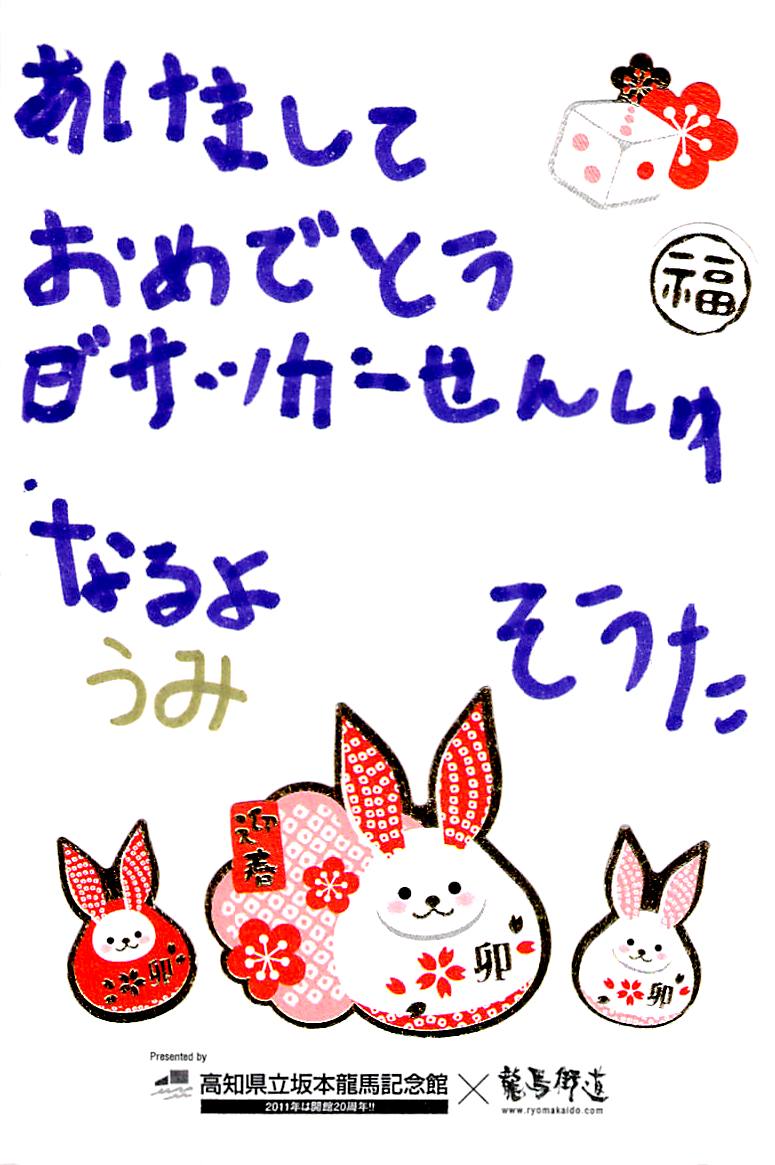 あけまして
おめでとう
ぼくサッカーせんしゅ
なるよ
そうた
うみ
福
迎春
卯
卯
卯
Presented by
高知県立坂本龍馬記念館×龍馬街道
2011年は開館20周年!!
www.ryomakaido.com